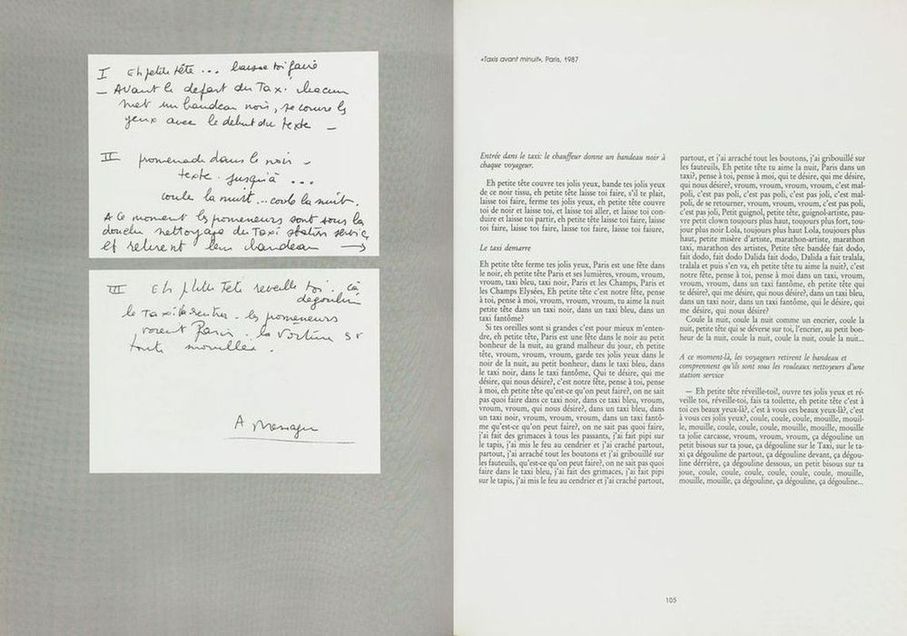 I Eh petite tête ... laisse toi faire
— Avant le depart du Taxi. chacun
met un bandeau noir, se couvre les
yeux avec le début du texte —
II promenade dans le noir —
texte jusqu'à ...
coule la nuit ... coule la nuit.
A ce moment les promeneurs sont sous la
douche nettoyage du Taxi station service
et retirent leur bandeau →
III Eh petite tête reveille toi. ça
dégouline
le Taxi - les promeneurs
voient Paris. la voiture est
toute mouillée.
A Messager
«Taxis avant minuit», Paris, 1987
Entrée dans le taxi: le chauffeur donne un bandeau noir à
chaque voyageur.
Eh petite tête couvre tes jolis yeux, bande tes jolis yeux
de ce noir tissu, eh petite tête laisse toi faire, s'il te plait,
laisse toi faire, ferme tes jolis yeux, eh petite tête couvre
toi de noir et laisse toi, et laisse toi aller, et laisse toi con-
duire et laisse toi partir, eh petite tête laisse toi faire, laisse
toi faire, laisse toi faire, laisse toi faire, laisse toi faiure,
Le taxi demarre
Eh petite tête ferme tes jolis yeux, Paris est une fête dans
le noir, eh petite tête Paris et ses lumières, vroum, vroum,
vroum, taxi bleu, taxi noir, Paris et les Champs, Paris et
les Champs Elysées, Eh petite tête c'est notre fête, pense
à toi, pense à moi, vroum, vroum, vroum, tu aime la nuit
petite tête dans un taxi noir, dans un taxi bleu, dans un
taxi fantôme?
Si tes oreilles sont si grandes c'est pour mieux m'enten-
dre, eh petite tête, Paris est une fête dans le noir au petit
bonheur de la nuit, au grand malheur du jour, eh petite
tête, vroum, vroum, vroum, garde tes jolis yeux dans le
noir de la nuit, au petit bonheur, dans le taxi bleu, dans
le taxi noir, dans le taxi fantôme, Qui te désire, qui me
désire, qui nous désire?, c'est notre fête, pense à toi, pense
à moi, eh petite tête qu'est-ce qu'on peut faire?, on ne sait
pas quoi faire dans ce taxi noir, dans ce taxi bleu, vroum,
vroum, vroum, qui nous désire?, dans un taxi bleu, dans
un taxi noir, vroum, vroum, vroum, dans un taxi fantô-
me qu'est-ce qu'on peut faire?, on ne sait pas quoi faire,
j'ai fait des grimaces à tous les passants, j'ai fait pipi sur
le tapis, j'ai mis le feu au cendrier et j'ai craché partout,
partout, j'ai arraché tout les boutons et j'ai gribouillé sur
les fauteuils, qu'est-ce qu'on peut faire?, on ne sait pas quoi
faire dans le taxi bleu, j'ai fait des grimaces, j'ai fait pipi
sur le tapis, j'ai mis le feu au cendrier et j'ai craché partout,
partout, et j'ai arraché tout les boutons, j'ai gribouillé sur
les fauteuils, Eh petite tête tu aime la nuit, Paris dans un
taxi?, pense à toi, pense à moi, qui te désire, qui me désire,
qui nous désire?, vroum, vroum, vroum, vroum, c'est mal-
poli, c'est pas poli, c'est pas poli, c'est pas joli, c'est mal-
poli, de se retourner, vroum, vroum, vroum, c'est pas poli,
c'est pas joli, Petit guignol, petite tête, guignol-artiste, pau-
vre petit clown toujours plus haut, toujours plus fort, tou-
jour plus noir Lola, toujours plus haut Lola, toujours plus
haut, petite misère d'artiste, marathon-artiste, marathon
taxi, marathon des artistes, Petite tête bandée fait dodo,
fait dodo, fait dodo Dalida fait dodo, Dalida a fait tralala,
tralala et puis s'en va, eh petite tête tu aime la nuit?, c'est
notre fête, pense à toi, pense à moi dans un taxi, vroum,
vroum, vroum, dans un taxi fantôme, eh petite tête qui
te désire?, qui me désire, qui nous désire?, dans un taxi bleu,
dans un taxi noir, dans un taxi fantôme, qui le désire, qui
me désire, qui nous désire?
Coule la nuit, coule la nuit comme un encrier, coule la
nuit, petite tête qui se déverse sur toi, l'encrier, au petit bon-
heur de la nuit, coule la nuit, coule la nuit, coule la nuit...
A ce moment-là, les voyageurs retirent le bandeau et
comprennent qu'ils sont sous les rouleaux nettoyeurs d'une
station service
— Eh petite tête réveille-toi!, ouvre tes jolis yeux et ré-
veille toi, réveille-toi, fais ta toilette, eh petite tête c'est à
toi ces beaux yeux-là?, c'est à vous ces beaux yeux-là?, c'est
à vous ces jolis yeux?, coule, coule, coule, mouille, mouil-
le, mouille, coule, coule, coule, mouille, mouille, mouille
ta jolie carcasse, vroum, vroum, vroum, ça dégouline un
petit bisous sur ta joue, ça dégouline sur le Taxi, sur le ta-
xi ça dégouline de partout, ça dégouline devant, ça dégou-
line dérrière, ça dégouline dessous, un petit bisous sur ta
joue, coule, coule, coule, coule, coule, coule, mouille,
mouille, mouille, ça dégouline, ça dégouline, ça dégouline...
105